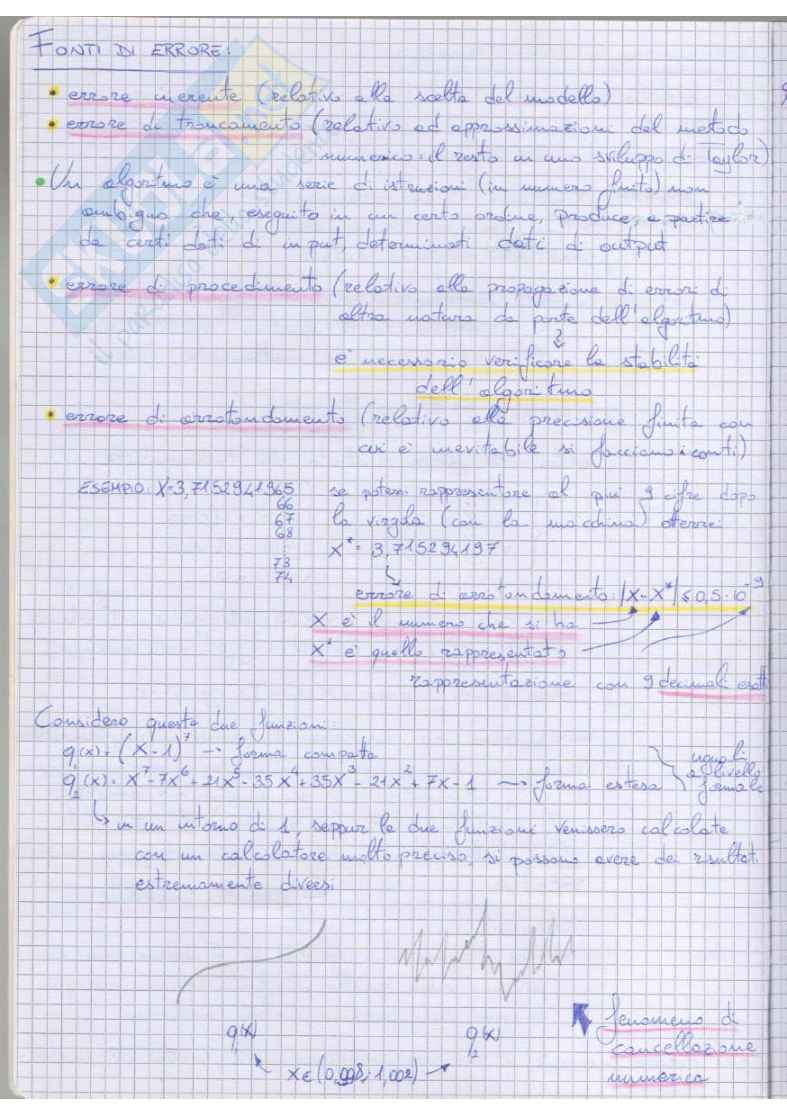 FONTI DI ERRORE:
• errore inerente (relativo alla scelta del modello)
• errore di troncamento (relativo ad approssimazioni del metodo
numerico: il resto in uno sviluppo di Taylor)
• Un algoritmo è una serie di istruzioni (in numero finito) non
ambigue che, eseguito in un certo ordine, produce, a partire
da certi dati di input, determinati dati di output
• errore di procedimento (relativo alla propagazione di errori di
altra natura da parte dell'algoritmo)
è necessario verificare la stabilità
dell'algoritmo
• errore di arrotondamento (relativo alla precisione finita con
cui è inevitabile si facciano i conti)
ESEMPIO: X=3,7152941965 se potessi rappresentare al più 9 cifre dopo
66
67 la virgola (con la macchina) otterrei
68
⋮ X* = 3,715294197
73
74
errore di arrotondamento: |X-X*| ≤ 0,5·10⁻⁹
X è il numero che si ha
X* è quello rappresentato
rappresentazione con 9 decimali esatti
Considero queste due funzioni
q₁(x) = (X-1)⁷ → forma compatta
q₂(x) = X⁷-7X⁶+21X⁵-35X⁴+35X³-21X²+7X-1 → forma estesa
uguali
a livello
formale
↳ in un intorno di 1, seppur le due funzioni venissero calcolate
con un calcolatore molto preciso, si possono avere dei risultati
estremamente diversi
q₁(x) q₂(x)
x∈(0,998; 1,002)
fenomeno di
cancellazione
numerica